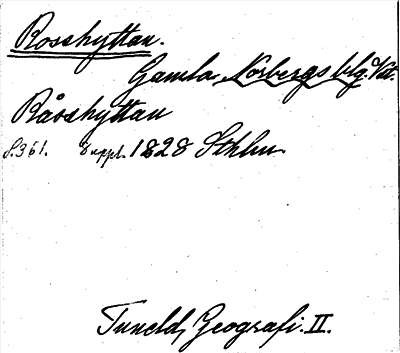 Rosshyttan.
Gamla Norbergs blg. Vstl.
Råsshyttan
S. 361. 8 uppl. 1828 Sthlm.
Tuneld, Geografi. II.